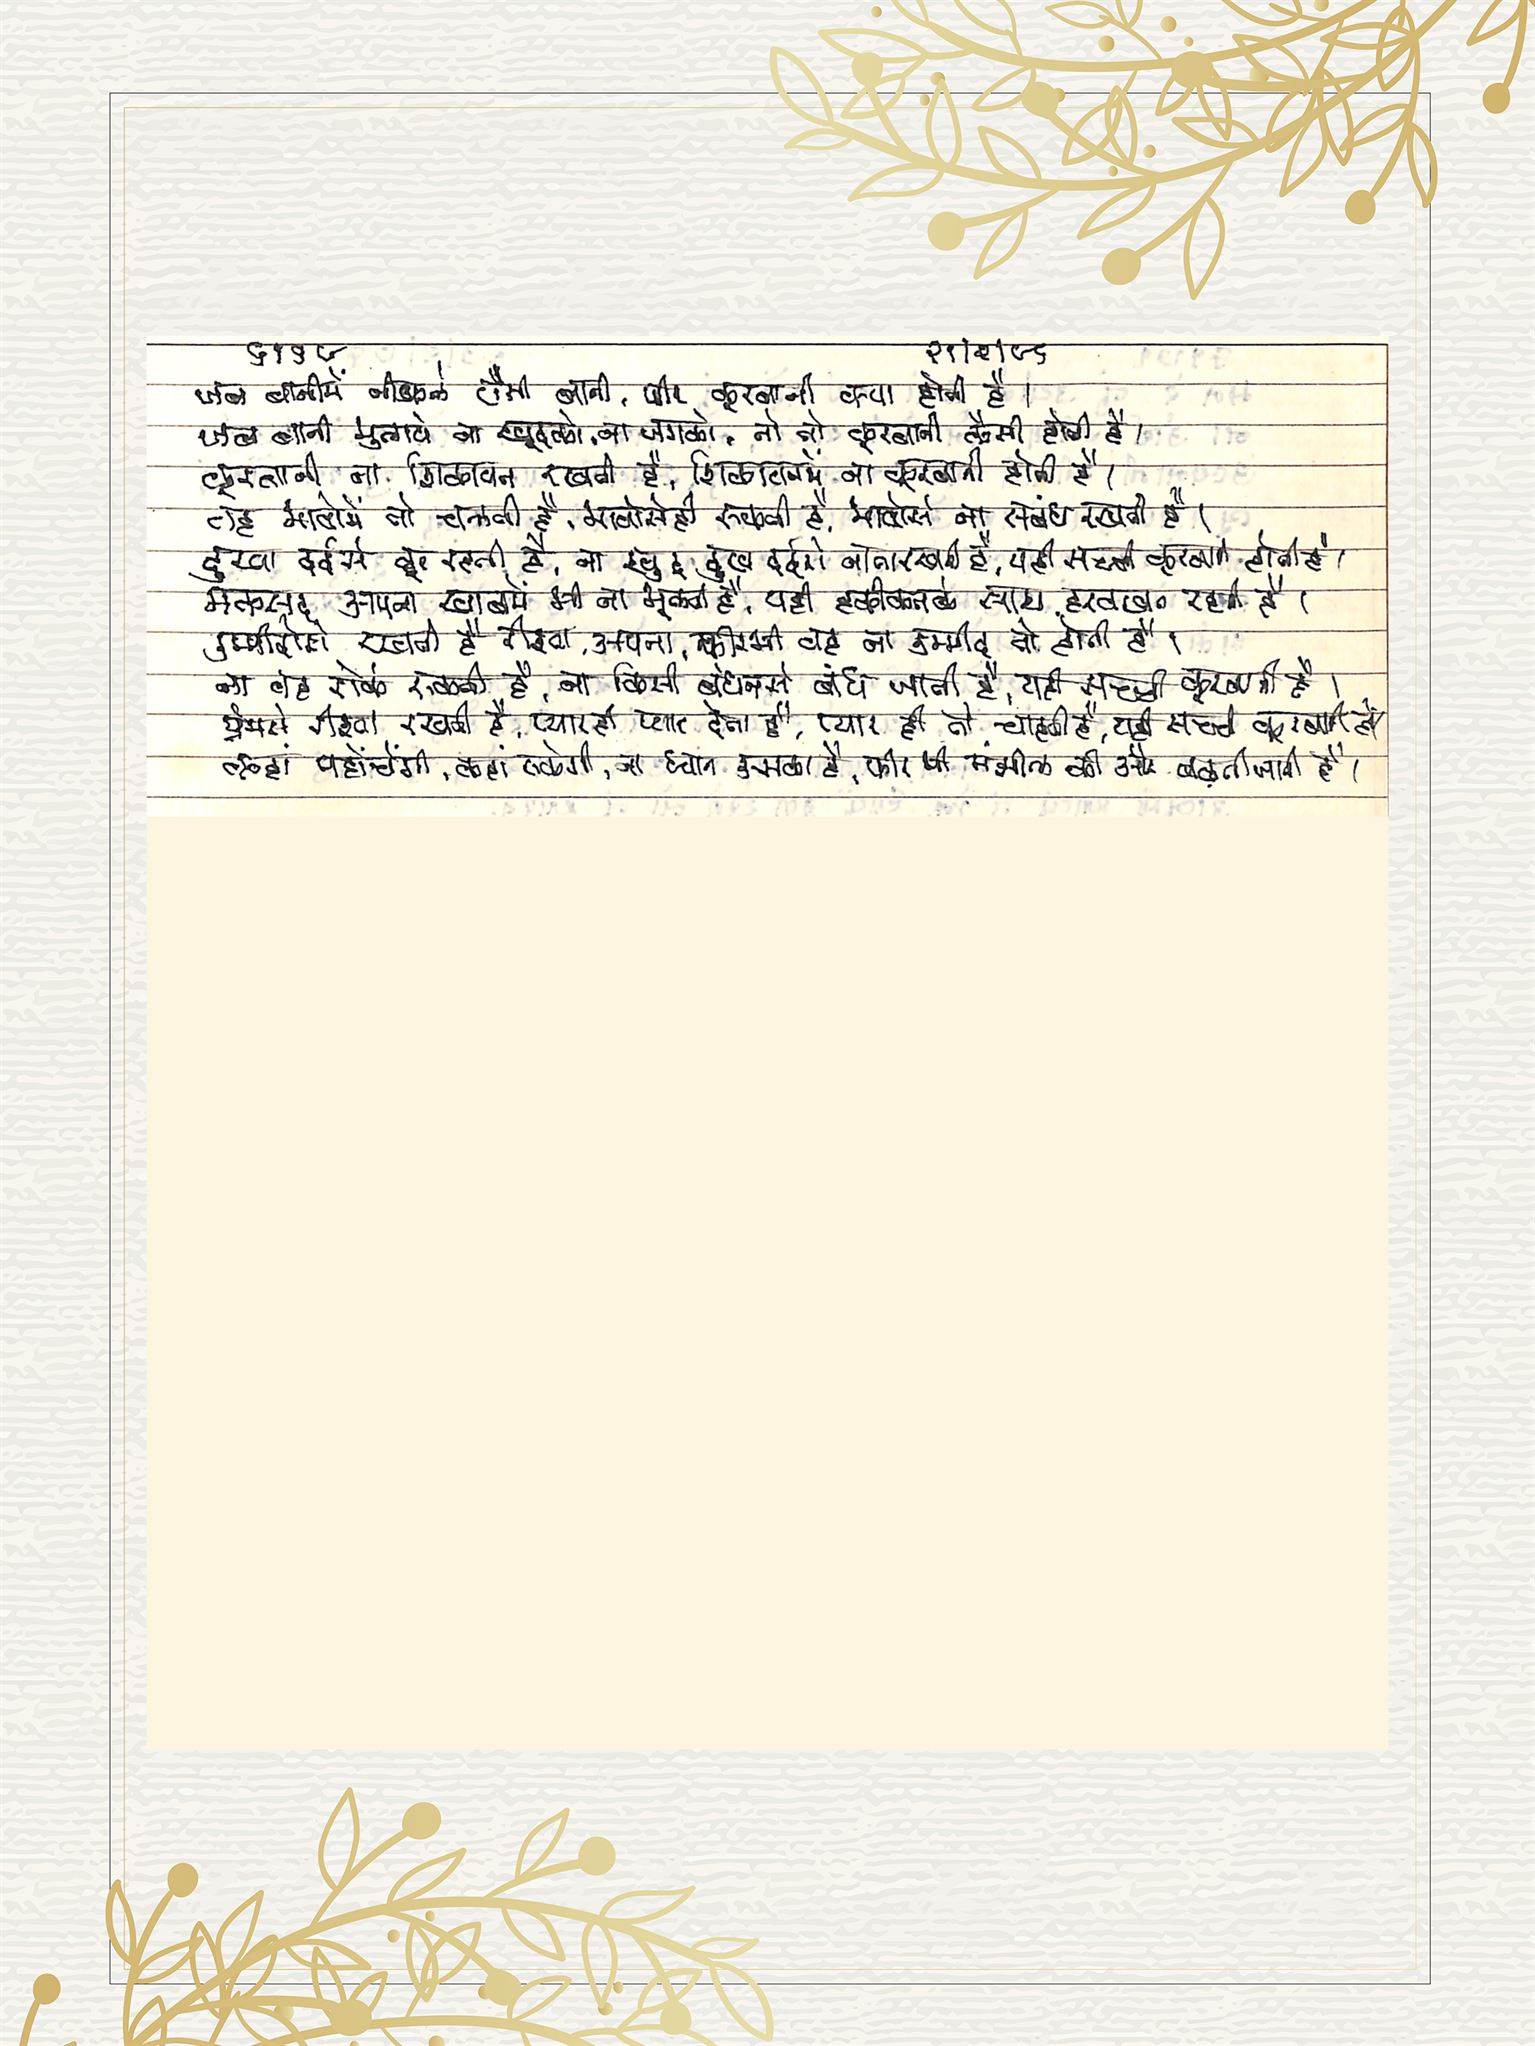 २१/२/८६
जब बानीमें नीकले बानी, फीर कूरबानी क्या होती है ।
जब बानी भुलाये ना खुदको, ना जगको, तो वो कूरबानी कैसी होती है ।
कूरबानी ना शिकायत रखती है, शिकायतमें ना कूरबानी होती है ।
वह भावोमें तो चलती है, भावोसेही रूकती है, भावोसे ना संबंध रखती है ।
दुःख दर्दसे दूर रहती है, ना खुद दुःख दर्दसे नाता रखती है, यही सच्ची कूरबानी होती है ।
मकसद अपना ख्वाबमें भी ना भूलती है, यही हकीकतके साथ हरवख्त रहती है ।
उम्मीदोसे रखती है रीश्ता अपना, फीरभी वह ना उम्मीद तो होती है ।
ना वह रोके रूकती है, ना किसी बंधनसे बांधे जाती है, यही सच्ची कूरबानी है ।
प्रेमसे रीश्ता रखती है, प्यारही प्यार देना है, प्यार ही तो चाहती है, यही सच्ची कूरबानी है ।
कहां पहोंचेगी, कहां रूकेगी, ना ध्यान उसका है, फीर भी मंझील की और बढ़ती जाती है ।